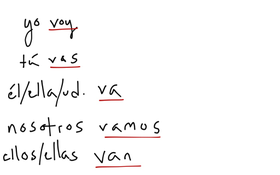 yo voy
tú vas
él/ella/ud. va
nosotros vamos
ellos/ellas van